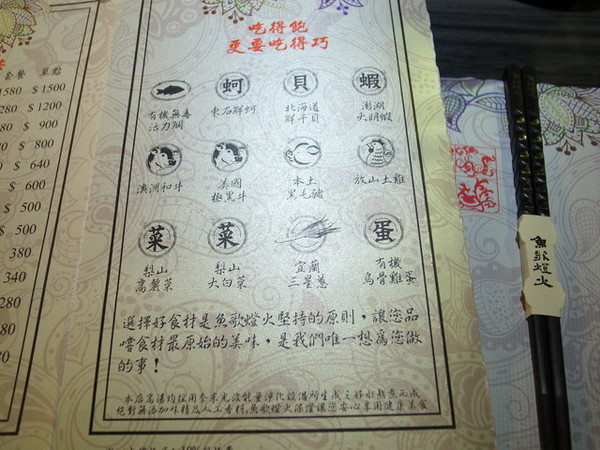 吃得飽
更要吃得巧
套餐 單點
1580 $1500
280 $1200
80 $ 900
20 $ 800
$ 640
$ 600
$ 500
$ 500
380
340
280
180
蚵 貝 蝦
有機無毒
活力鯛
東石鮮蚵
北海道
鮮干貝
澎湖
大明蝦
澳洲和牛
美國
極黑牛
本土
黑毛豬
放山土雞
菜 菜 蛋
梨山
高麗菜
梨山
大白菜
宜蘭
三星蔥
有機
烏骨雞蛋
選擇好食材是魚歌燈火堅持的原則，讓您品
嚐食材最原始的美味，是我們唯一想為您做
的事！
本店高湯均採用奈米光波能量淨化設備所生成之好水熬煮而成
絕對無添加味精及人工香料，魚歌燈火保證讓您安心享用健康美食
魚歌燈火